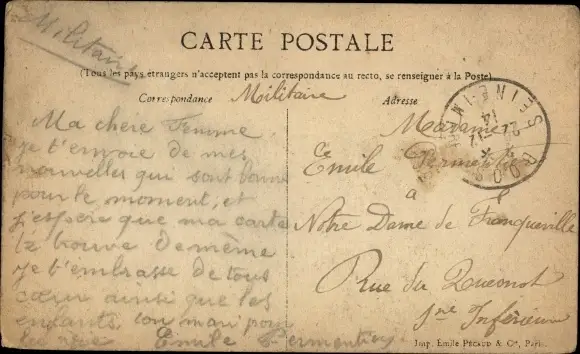 Militaire
CARTE POSTALE
(Tous les pays étrangers n'acceptent pas la correspondance au recto, se renseigner à la Poste)
Correspondance
Militaire
Adresse
Ma chère Femme
je t'envoie de mes
nouvelles qui sont bonne
pour le moment, et
j'espère que ma carte
te trouve de même
je t'embrasse de tous
cœur ainsi que les
enfants, ton mari pour
la vie Emile
Madame
Emile
à
Notre Dame de Franqueville
Rue du
Sne Inférieure
Imp. Émile PÉCAUD & Cie, Paris.